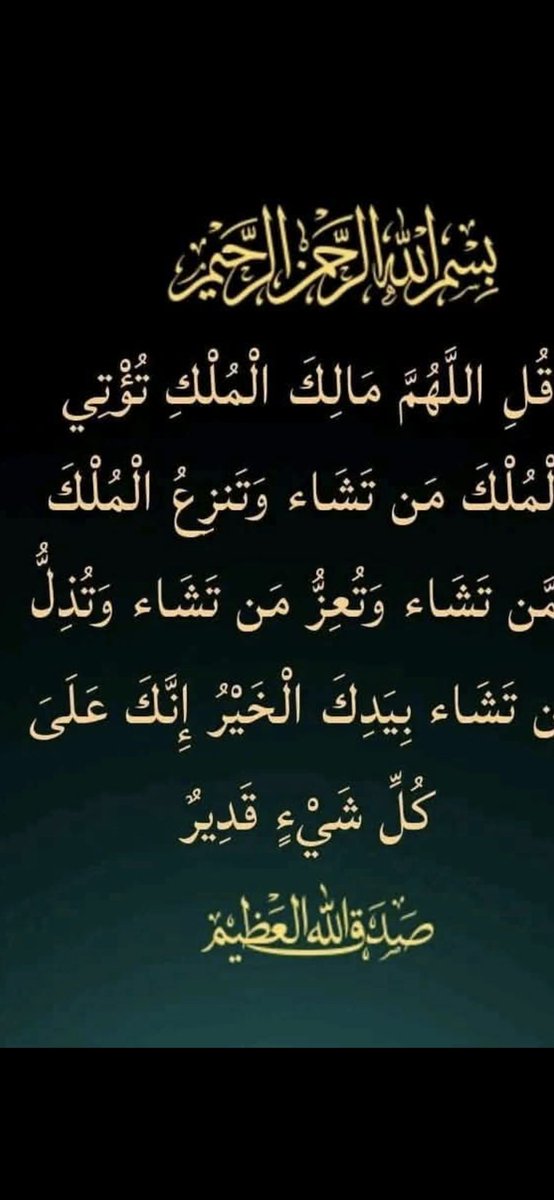 بِسْمِ اللهِ الرَّحْمٰنِ الرَّحِيْمِ
قُلِ اللَّهُمَّ مَالِكَ الْمُلْكِ تُؤْتِي
لْمُلْكَ مَن تَشَاء وَتَنزِعُ الْمُلْكَ
مَّن تَشَاء وَتُعِزُّ مَن تَشَاء وَتُذِلُّ
ن تَشَاء بِيَدِكَ الْخَيْرُ إِنَّكَ عَلَىَ
كُلِّ شَيْءٍ قَدِيرٌ
صَدَقَ اللهُ العَظِيْم